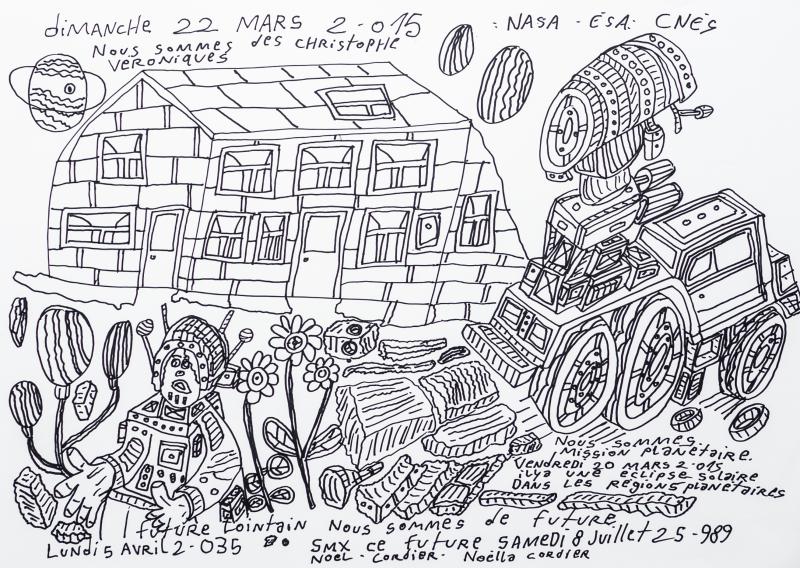 dimanche 22 MARS 2-015
: NASA - ESA. CNES
Nous sommes des CHRISTOPHE
VERONIQUES
Nous sommes
Mission planétaire.
Vendredi 20 MARS 2-015
ilya UN éclipse solaire
DANS LES Régions planétaires
future Lointain Nous sommes de future
Lundi 5 AVRIL 2-035
SMX ce future SAMEDI 8 Juillet 25-989
NOEL-CORDIER- Noëlla CORDIER